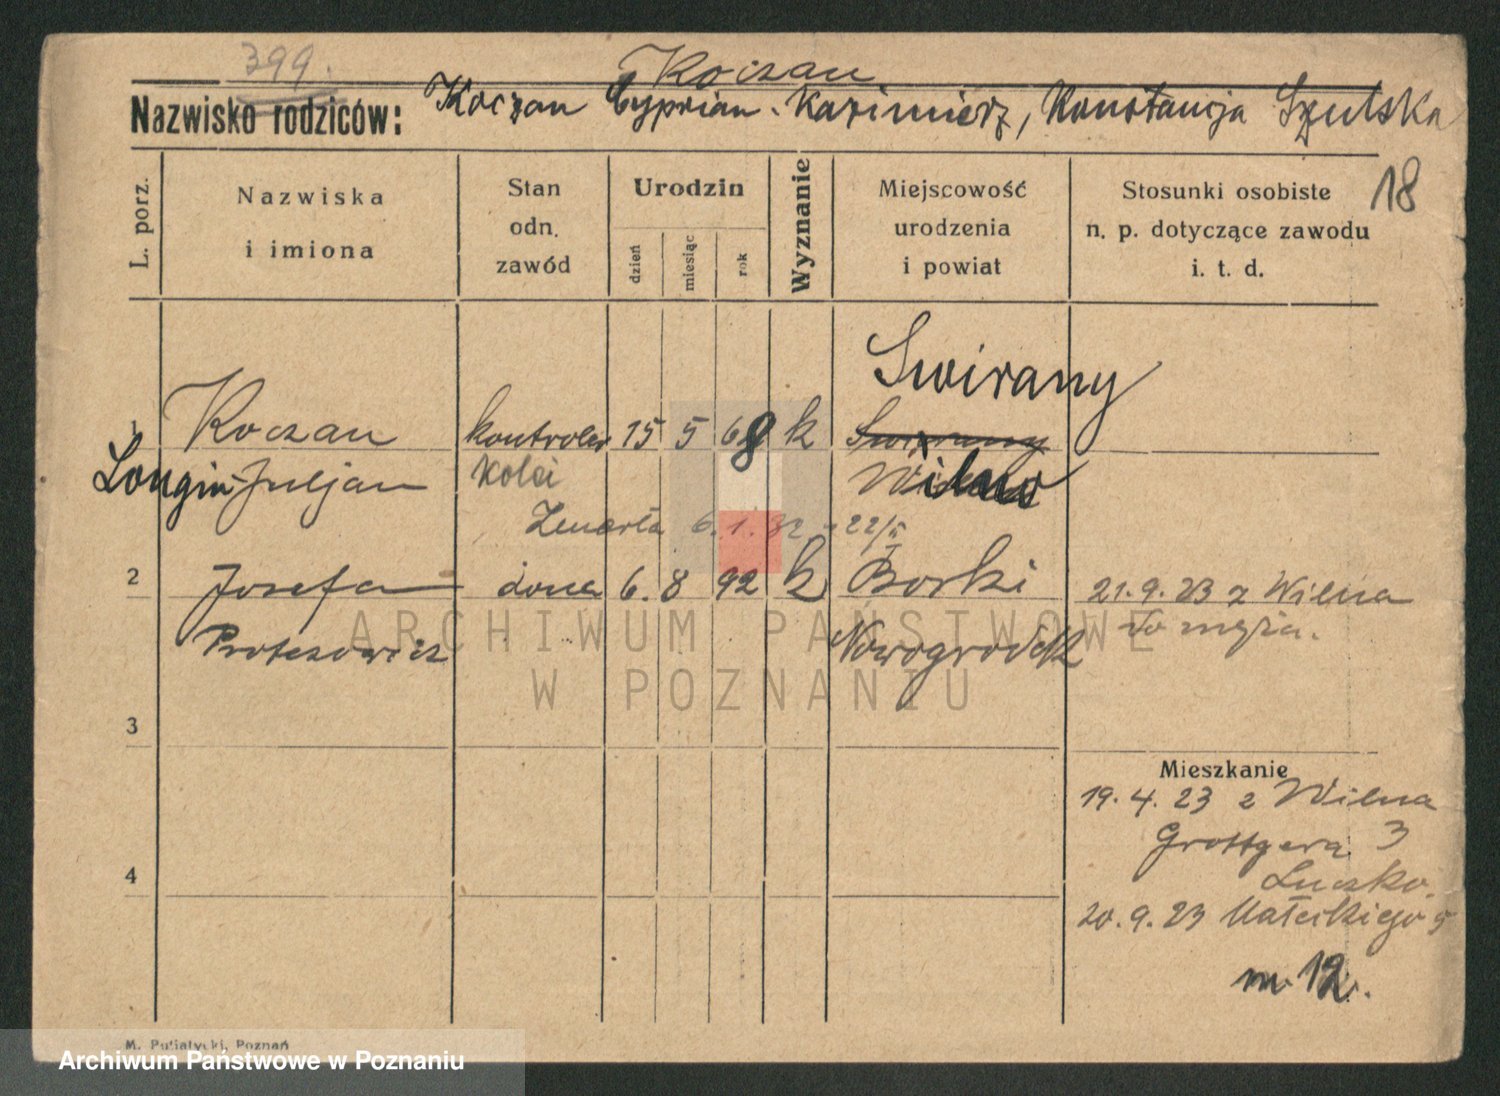 399.
Koczan
Nazwisko rodziców: Koczan Cyprian-Kazimierz, Konstancja Szulska
18
L. porz.
Nazwiska
i imiona
Stan
odn.
zawód
Urodzin
dzień
miesiąc
rok
Wyznanie
Miejscowość
urodzenia
i powiat
Stosunki osobiste
n. p. dotyczące zawodu
i. t. d.
Swirany
1 Koczan kontroler 15 5 68 k Swirany
Longin-Juljan kolei Wilno
Zmarła 6.1.32
2 Josefa żona 6. 8 92 k Borki 21.9.23 z Wilna
Protasowicz Nowogrodek do męża.
3
Mieszkanie
19.4.23 z Wilna
Grottgera 3
4
20.9.23 Małeckiego 5
m 12.
M. Putiatycki, Poznań
ARCHIWUM PAŃSTWOWE
W POZNANIU
Archiwum Państwowe w Poznaniu